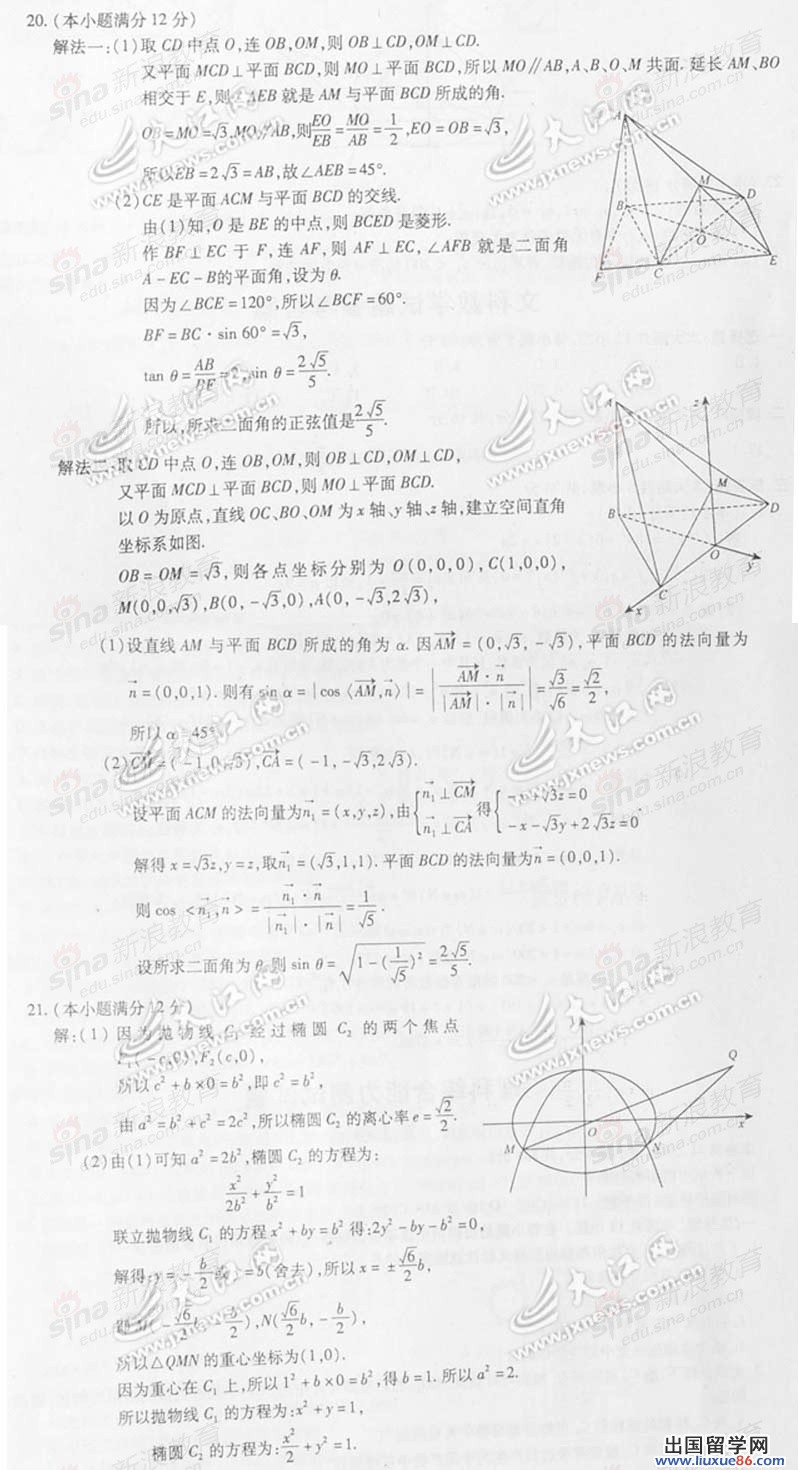 20.(本小题满分12分)
解法一:(1)取CD中点O,连OB,OM,则OB⊥CD,OM⊥CD.
又平面MCD⊥平面BCD,则MO⊥平面BCD,所以MO∥AB,A、B、O、M共面.延长AM、BO
相交于E,则∠AEB就是AM与平面BCD所成的角.
OB=MO=√3,MO∥AB,则EO/EB=MO/AB=1/2,EO=OB=√3,
所以EB=2√3=AB,故∠AEB=45°.
(2)CE是平面ACM与平面BCD的交线.
由(1)知,O是BE的中点,则BCED是菱形.
作BF⊥EC于F,连AF,则AF⊥EC,∠AFB就是二面角
A-EC-B的平面角,设为θ.
因为∠BCE=120°,所以∠BCF=60°.
BF=BC·sin 60°=√3,
tan θ=AB/BF=2,sin θ=2√5/5.
所以,所求二面角的正弦值是2√5/5.
A
M
B
D
O
F
C
E
解法二:取CD中点O,连OB,OM,则OB⊥CD,OM⊥CD,
又平面MCD⊥平面BCD,则MO⊥平面BCD.
以O为原点,直线OC、BO、OM为x轴、y轴、z轴,建立空间直角
坐标系如图.
OB=OM=√3,则各点坐标分别为O(0,0,0),C(1,0,0),
M(0,0,√3),B(0,-√3,0),A(0,-√3,2√3),
A
z
M
B
D
O
y
C
x
(1)设直线AM与平面BCD所成的角为α.因AM→=(0,√3,-√3),平面BCD的法向量为
n→=(0,0,1).则有sin α=|cos〈AM→,n→〉|=|AM→·n→/(|AM→|·|n→|)|=√3/√6=√2/2,
所以α=45°.
(2)CM→=(-1,0,√3),CA→=(-1,-√3,2√3).
设平面ACM的法向量为n₁→=(x,y,z),由{n₁→⊥CM→ n₁→⊥CA→得{-x+√3z=0 -x-√3y+2√3z=0.
解得x=√3z,y=z,取n₁→=(√3,1,1).平面BCD的法向量为n→=(0,0,1).
则cos<n₁→,n→>=n₁→·n→/(|n₁→|·|n→|)=1/√5.
设所求二面角为θ,则sin θ=√(1-(1/√5)²)=2√5/5.
21.(本小题满分12分)
解:(1)因为抛物线C₁经过椭圆C₂的两个焦点
F₁(-c,0),F₂(c,0),
所以c²+b×0=b²,即c²=b²,
由a²=b²+c²=2c²,所以椭圆C₂的离心率e=√2/2.
(2)由(1)可知a²=2b²,椭圆C₂的方程为:
x²/2b²+y²/b²=1
联立抛物线C₁的方程x²+by=b²得:2y²-by-b²=0,
解得:y=-b/2或y=b(舍去),所以x=±√6/2b,
即M(-√6/2b,-b/2),N(√6/2b,-b/2),
所以△QMN的重心坐标为(1,0).
因为重心在C₁上,所以1²+b×0=b²,得b=1.所以a²=2.
所以抛物线C₁的方程为:x²+y=1,
椭圆C₂的方程为:x²/2+y²=1.
Q
O
x
M
N
sina新浪教育
edu.sina.com.cn
大江网
www.jxnews.com.cn
出国留学网
www.liuxue86.com